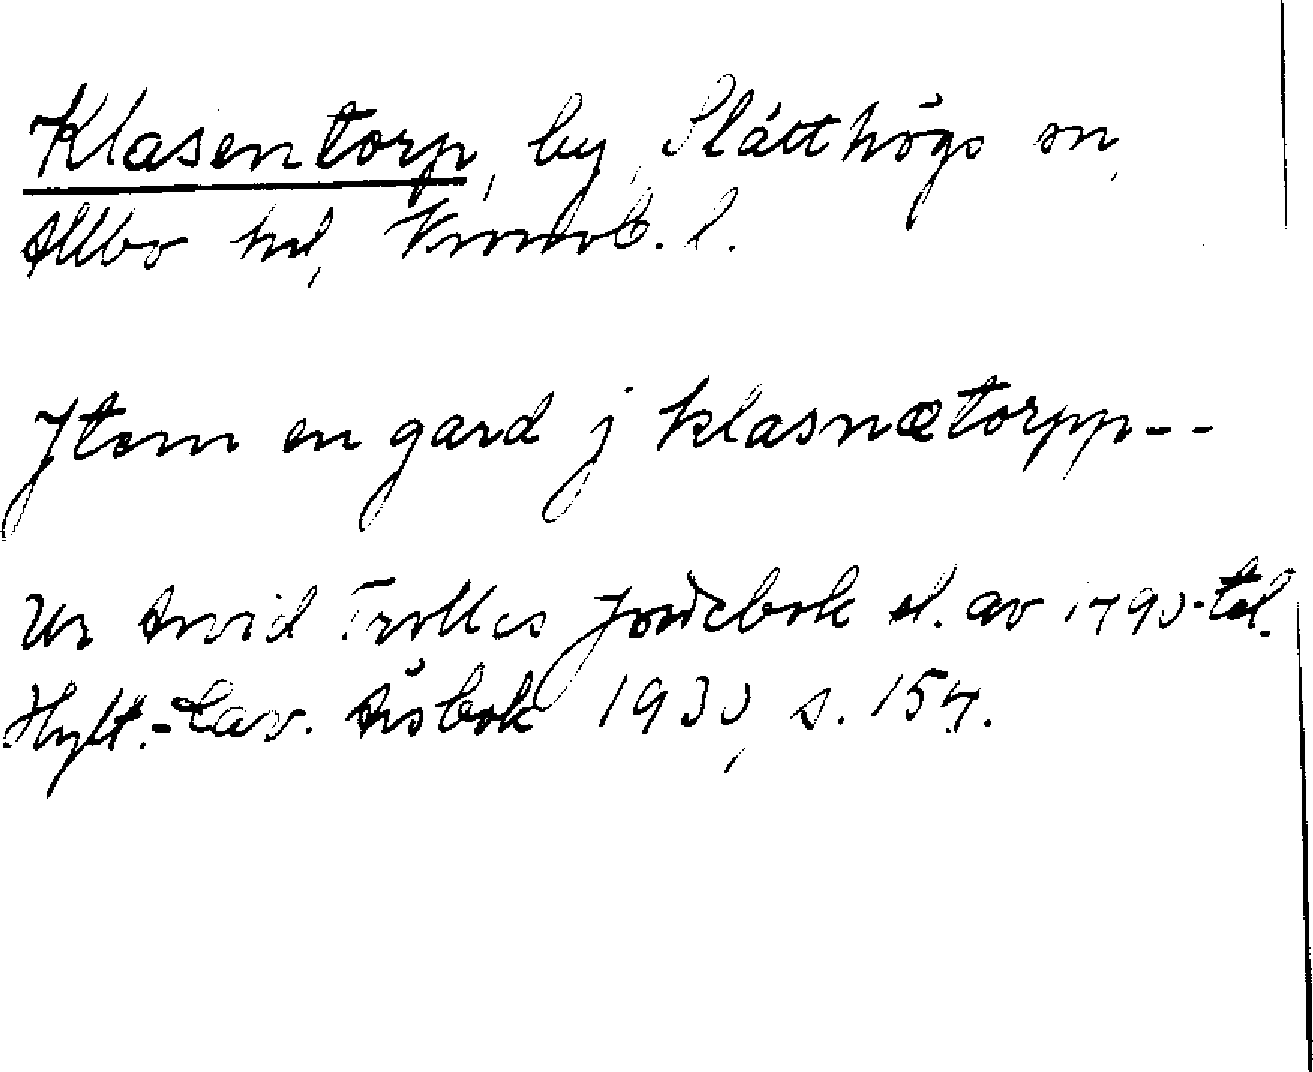 Klasentorp, by, Slätthögs sn,
Allbo hd, Kronob. l.
Jtem en gard j klasnætorpp--
Ur Arvid Trolles Jordebok sl. av 1490-tal.
Hylt.-Cav. Årsbok 1930, s. 154.